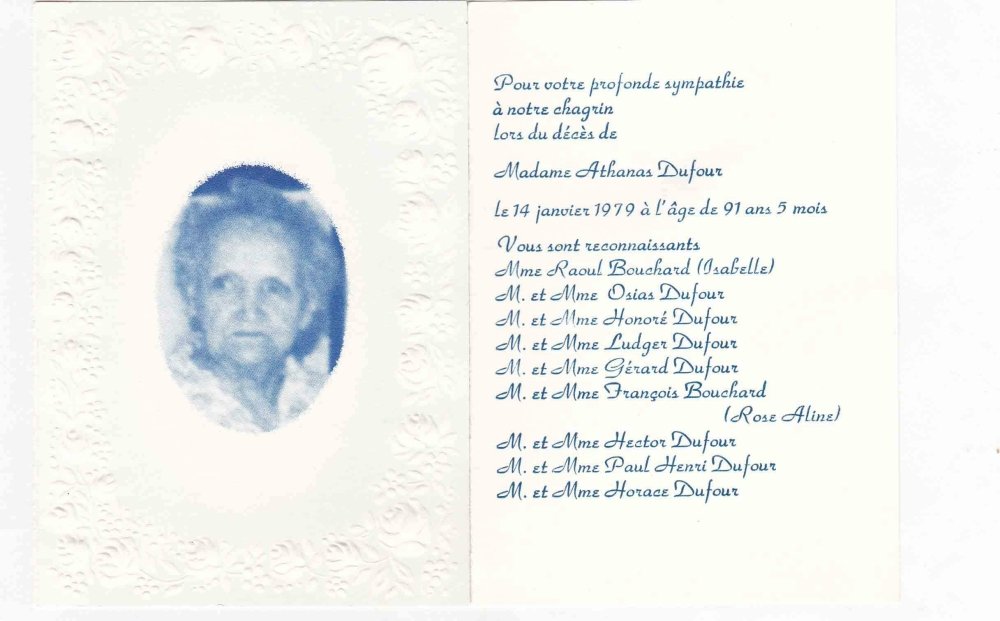 Pour votre profonde sympathie
à notre chagrin
lors du décès de
Madame Athanas Dufour
le 14 janvier 1979 à l'âge de 91 ans 5 mois
Vous sont reconnaissants
Mme Raoul Bouchard (Isabelle)
M. et Mme Osias Dufour
M. et Mme Honoré Dufour
M. et Mme Ludger Dufour
M. et Mme Gérard Dufour
M. et Mme François Bouchard
(Rose Aline)
M. et Mme Hector Dufour
M. et Mme Paul Henri Dufour
M. et Mme Horace Dufour